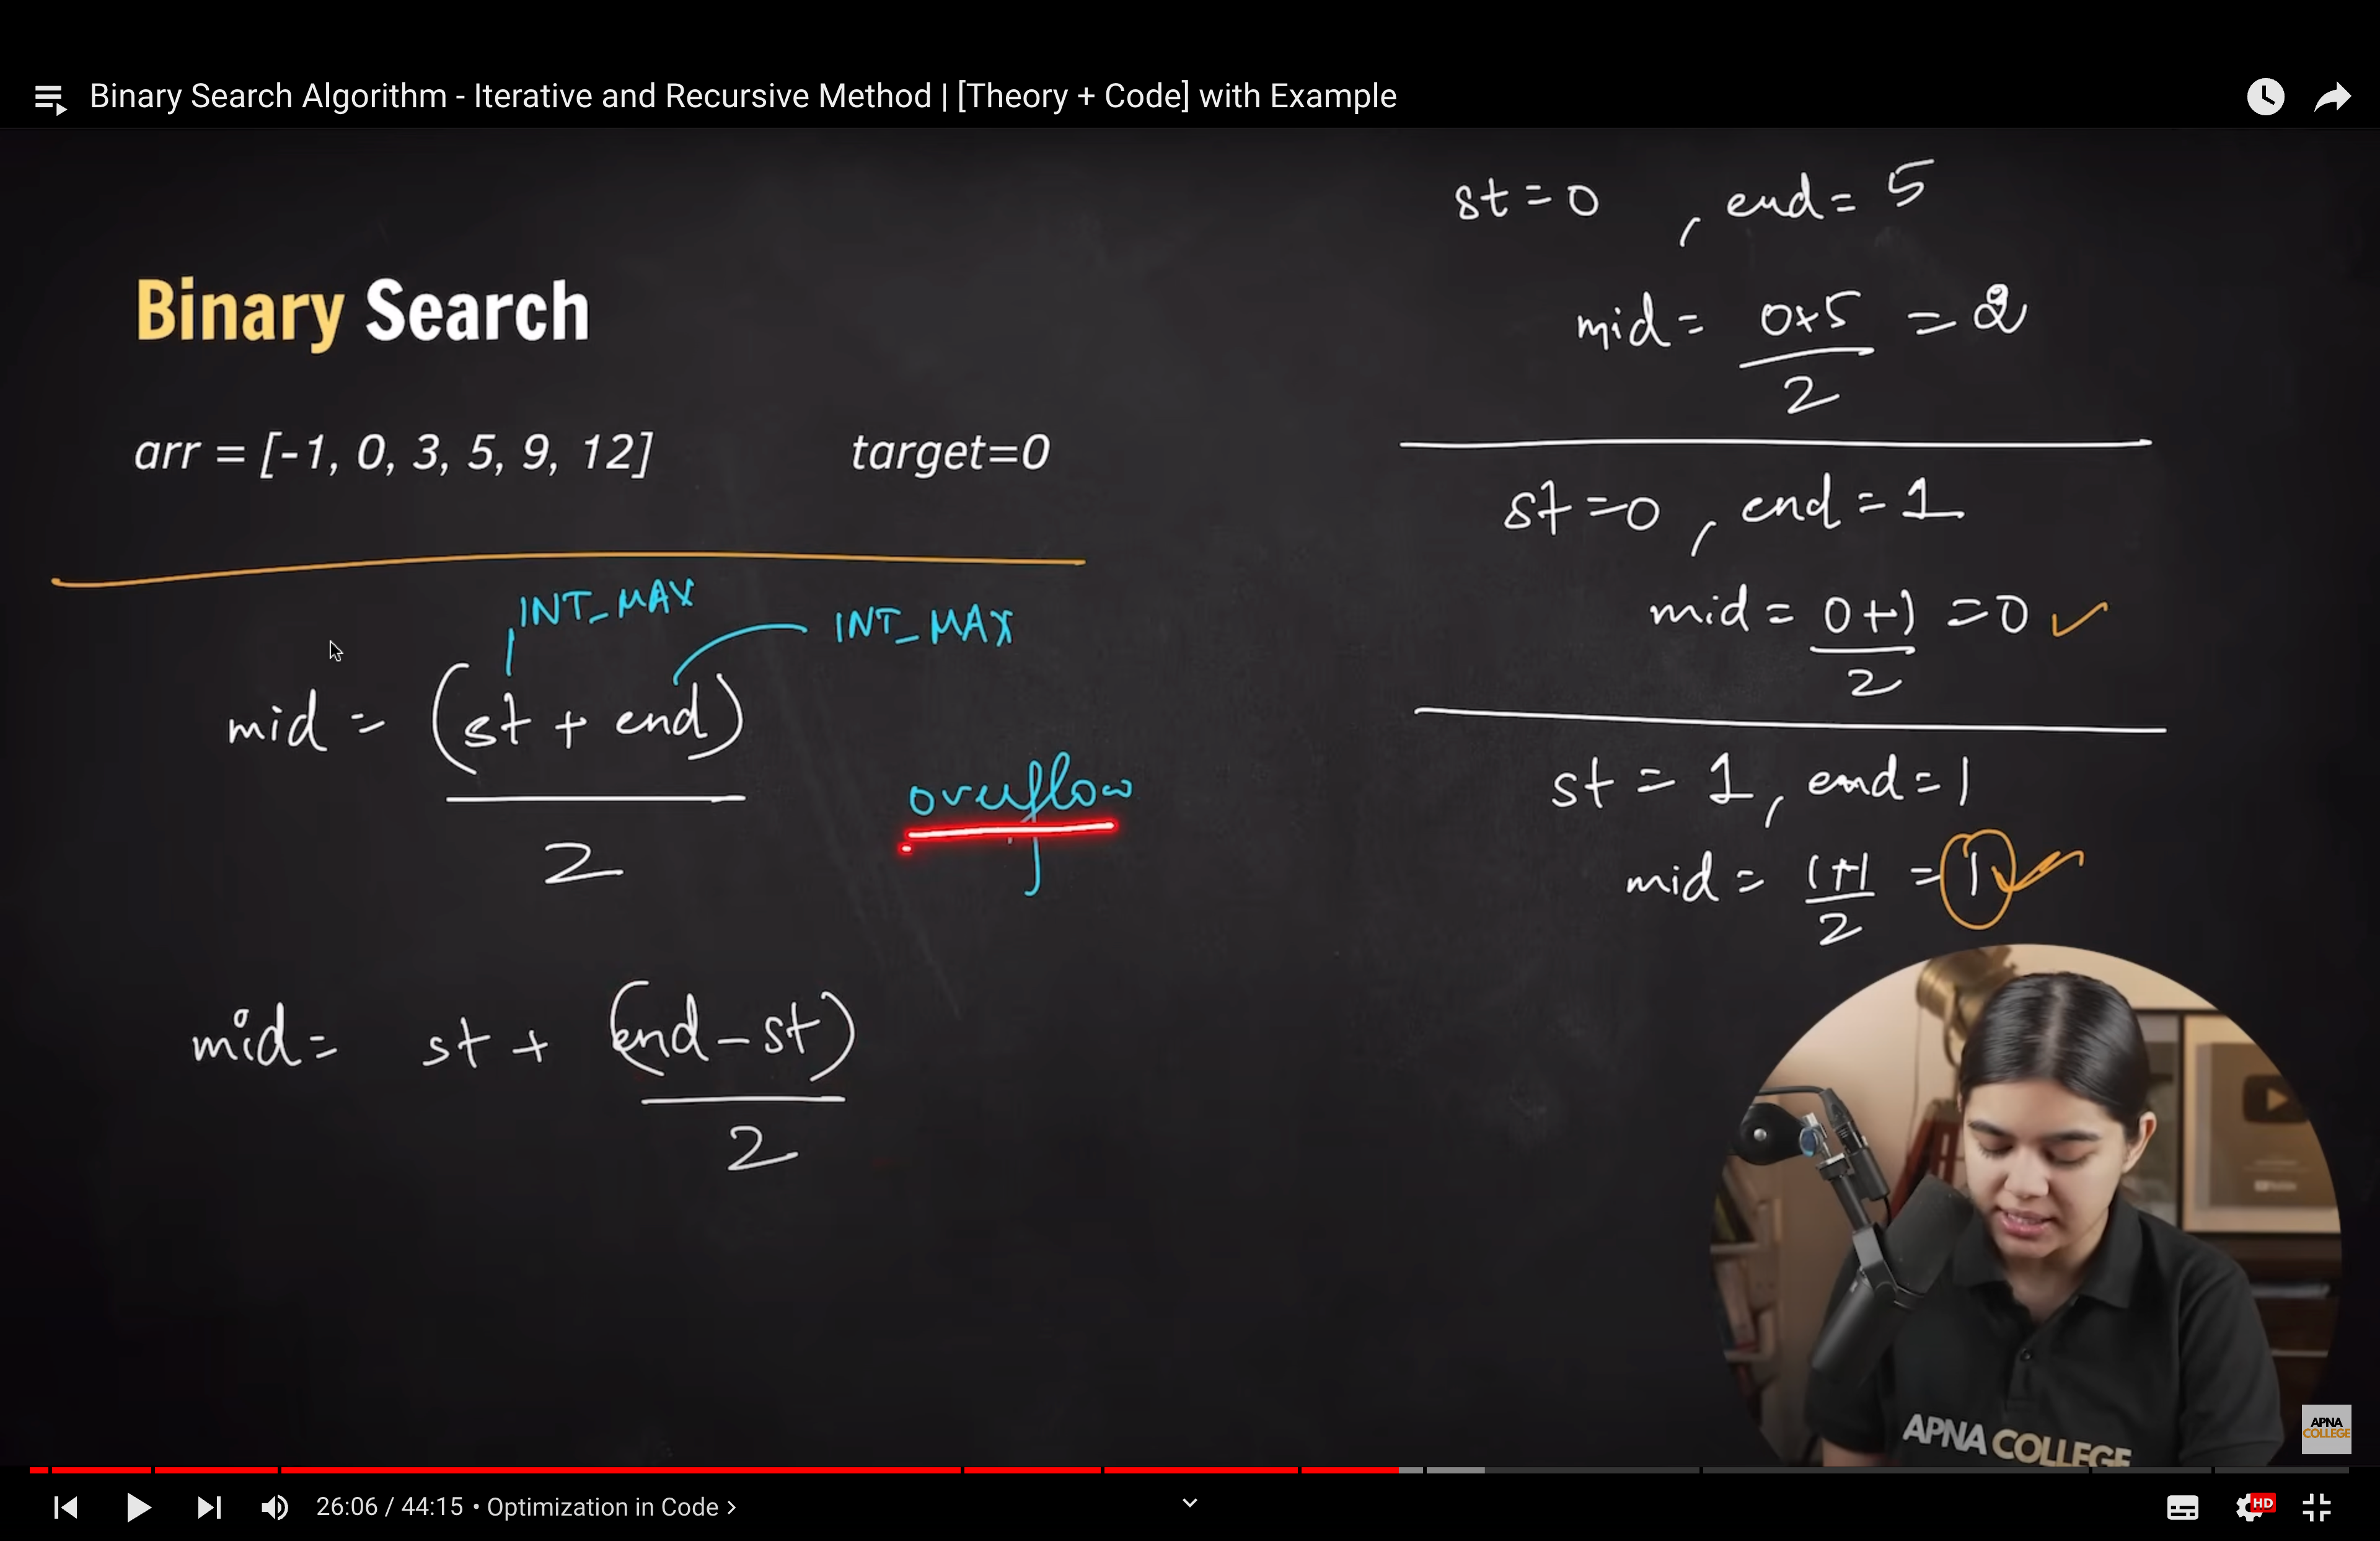 Binary Search Algorithm - Iterative and Recursive Method | [Theory + Code] with Example
Binary Search
arr = [-1, 0, 3, 5, 9, 12] target=0
INT_MAX
INT_MAX
mid = (st + end)
2
overflow
mid = st + (end - st)
2
st = 0 , end = 5
mid = 0+5 = 2
2
st = 0 , end = 1
mid = 0+1 = 0 ✓
2
st = 1 , end = 1
mid = 1+1 = 1 ✓
2
APNA COLLEGE
APNA
COLLEGE
26:06 / 44:15 • Optimization in Code >
HD